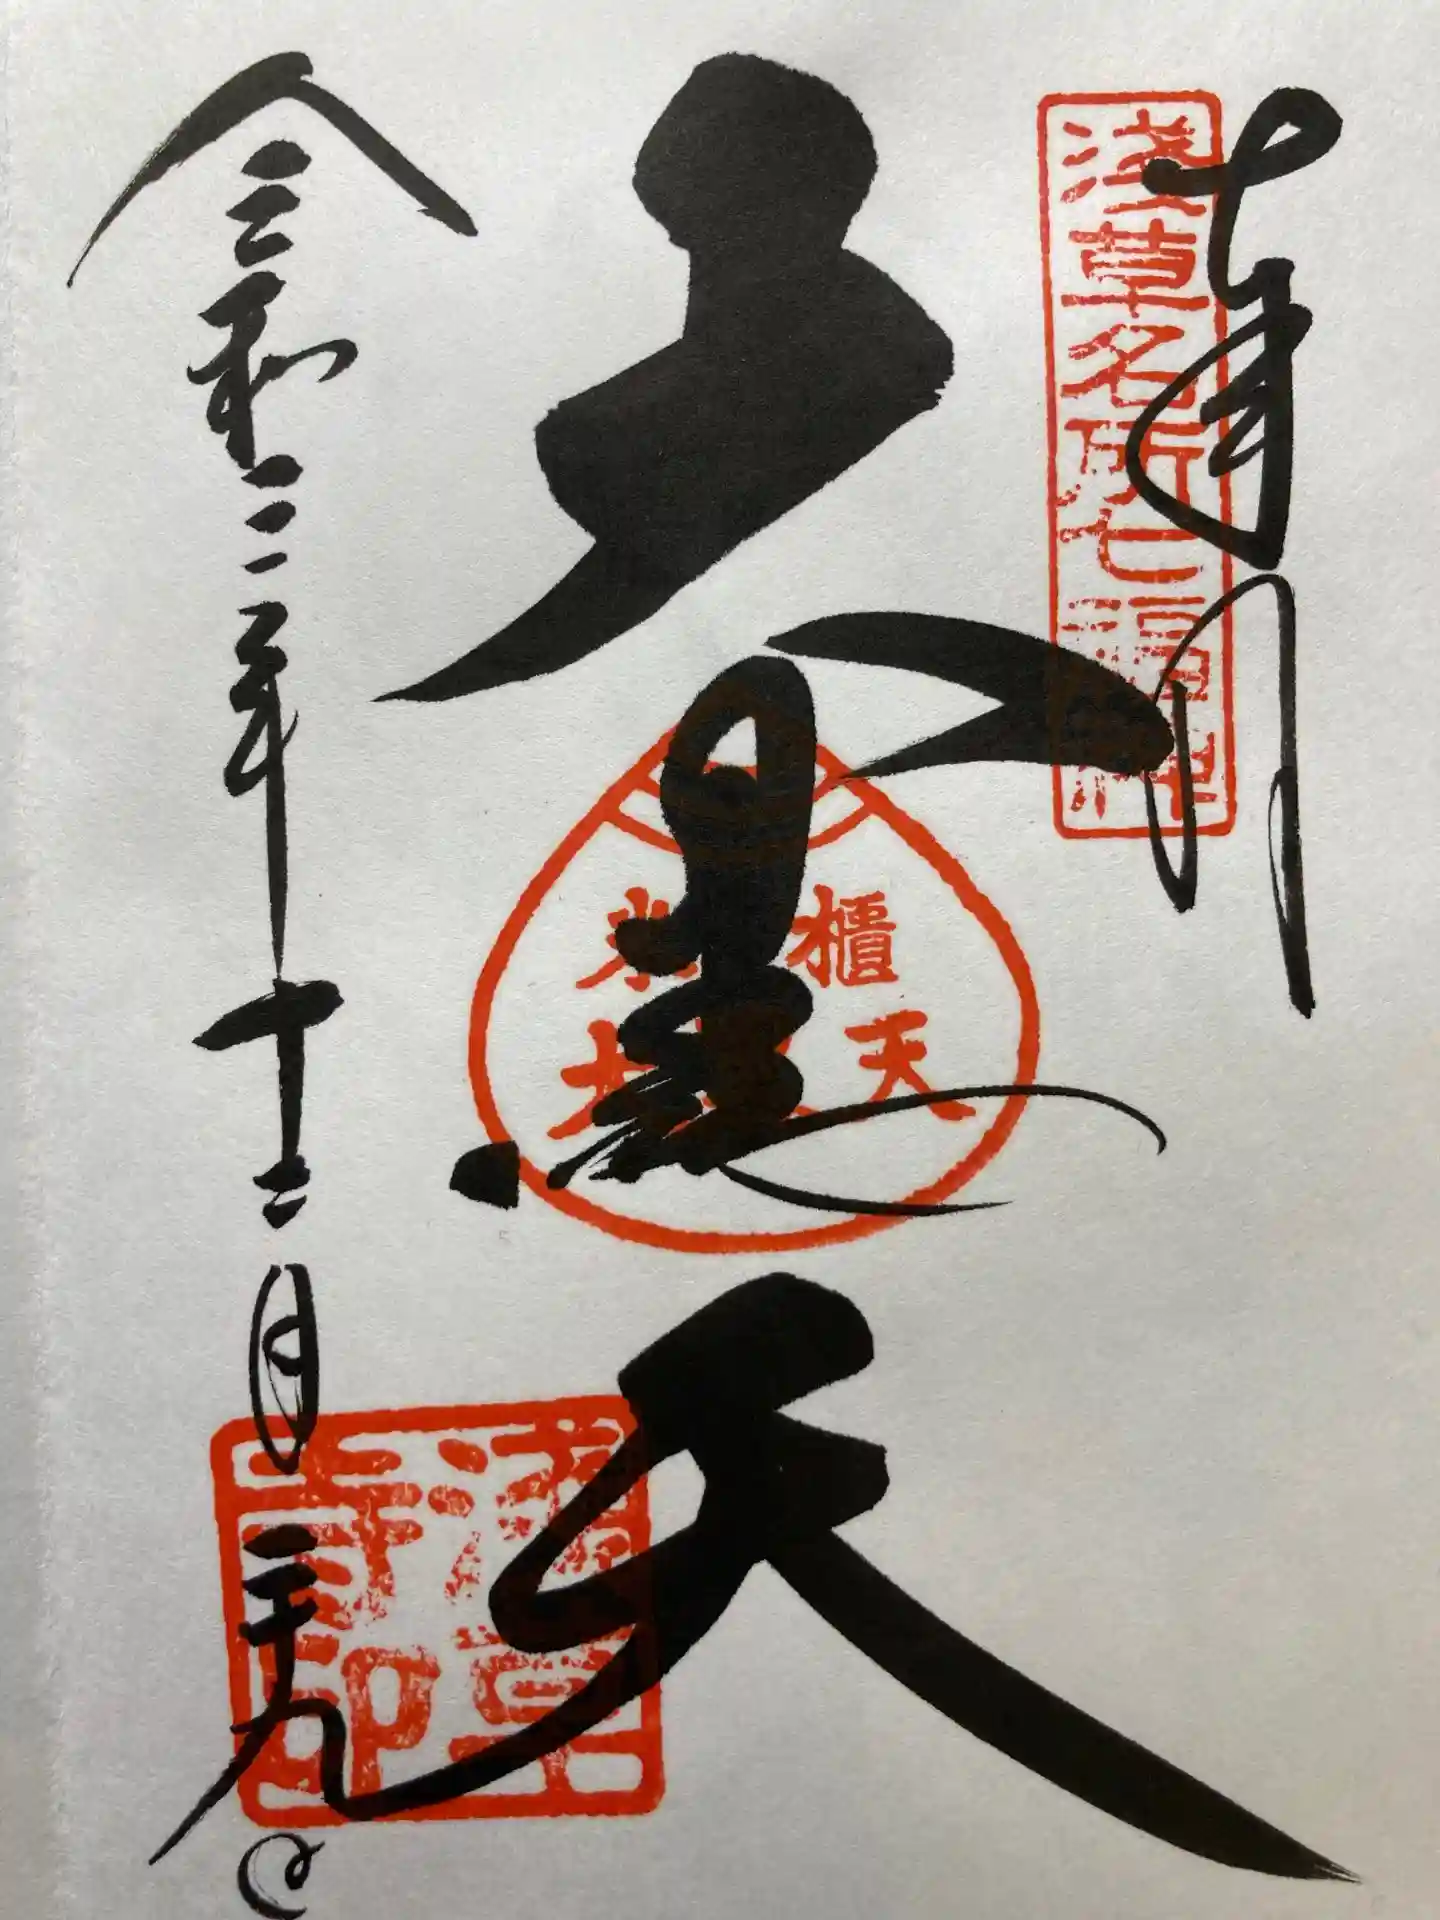 奉拝
淺草名所七福神
大黒天
米櫃
大黒天
令和三年十二月二十九日
淺草
寺印